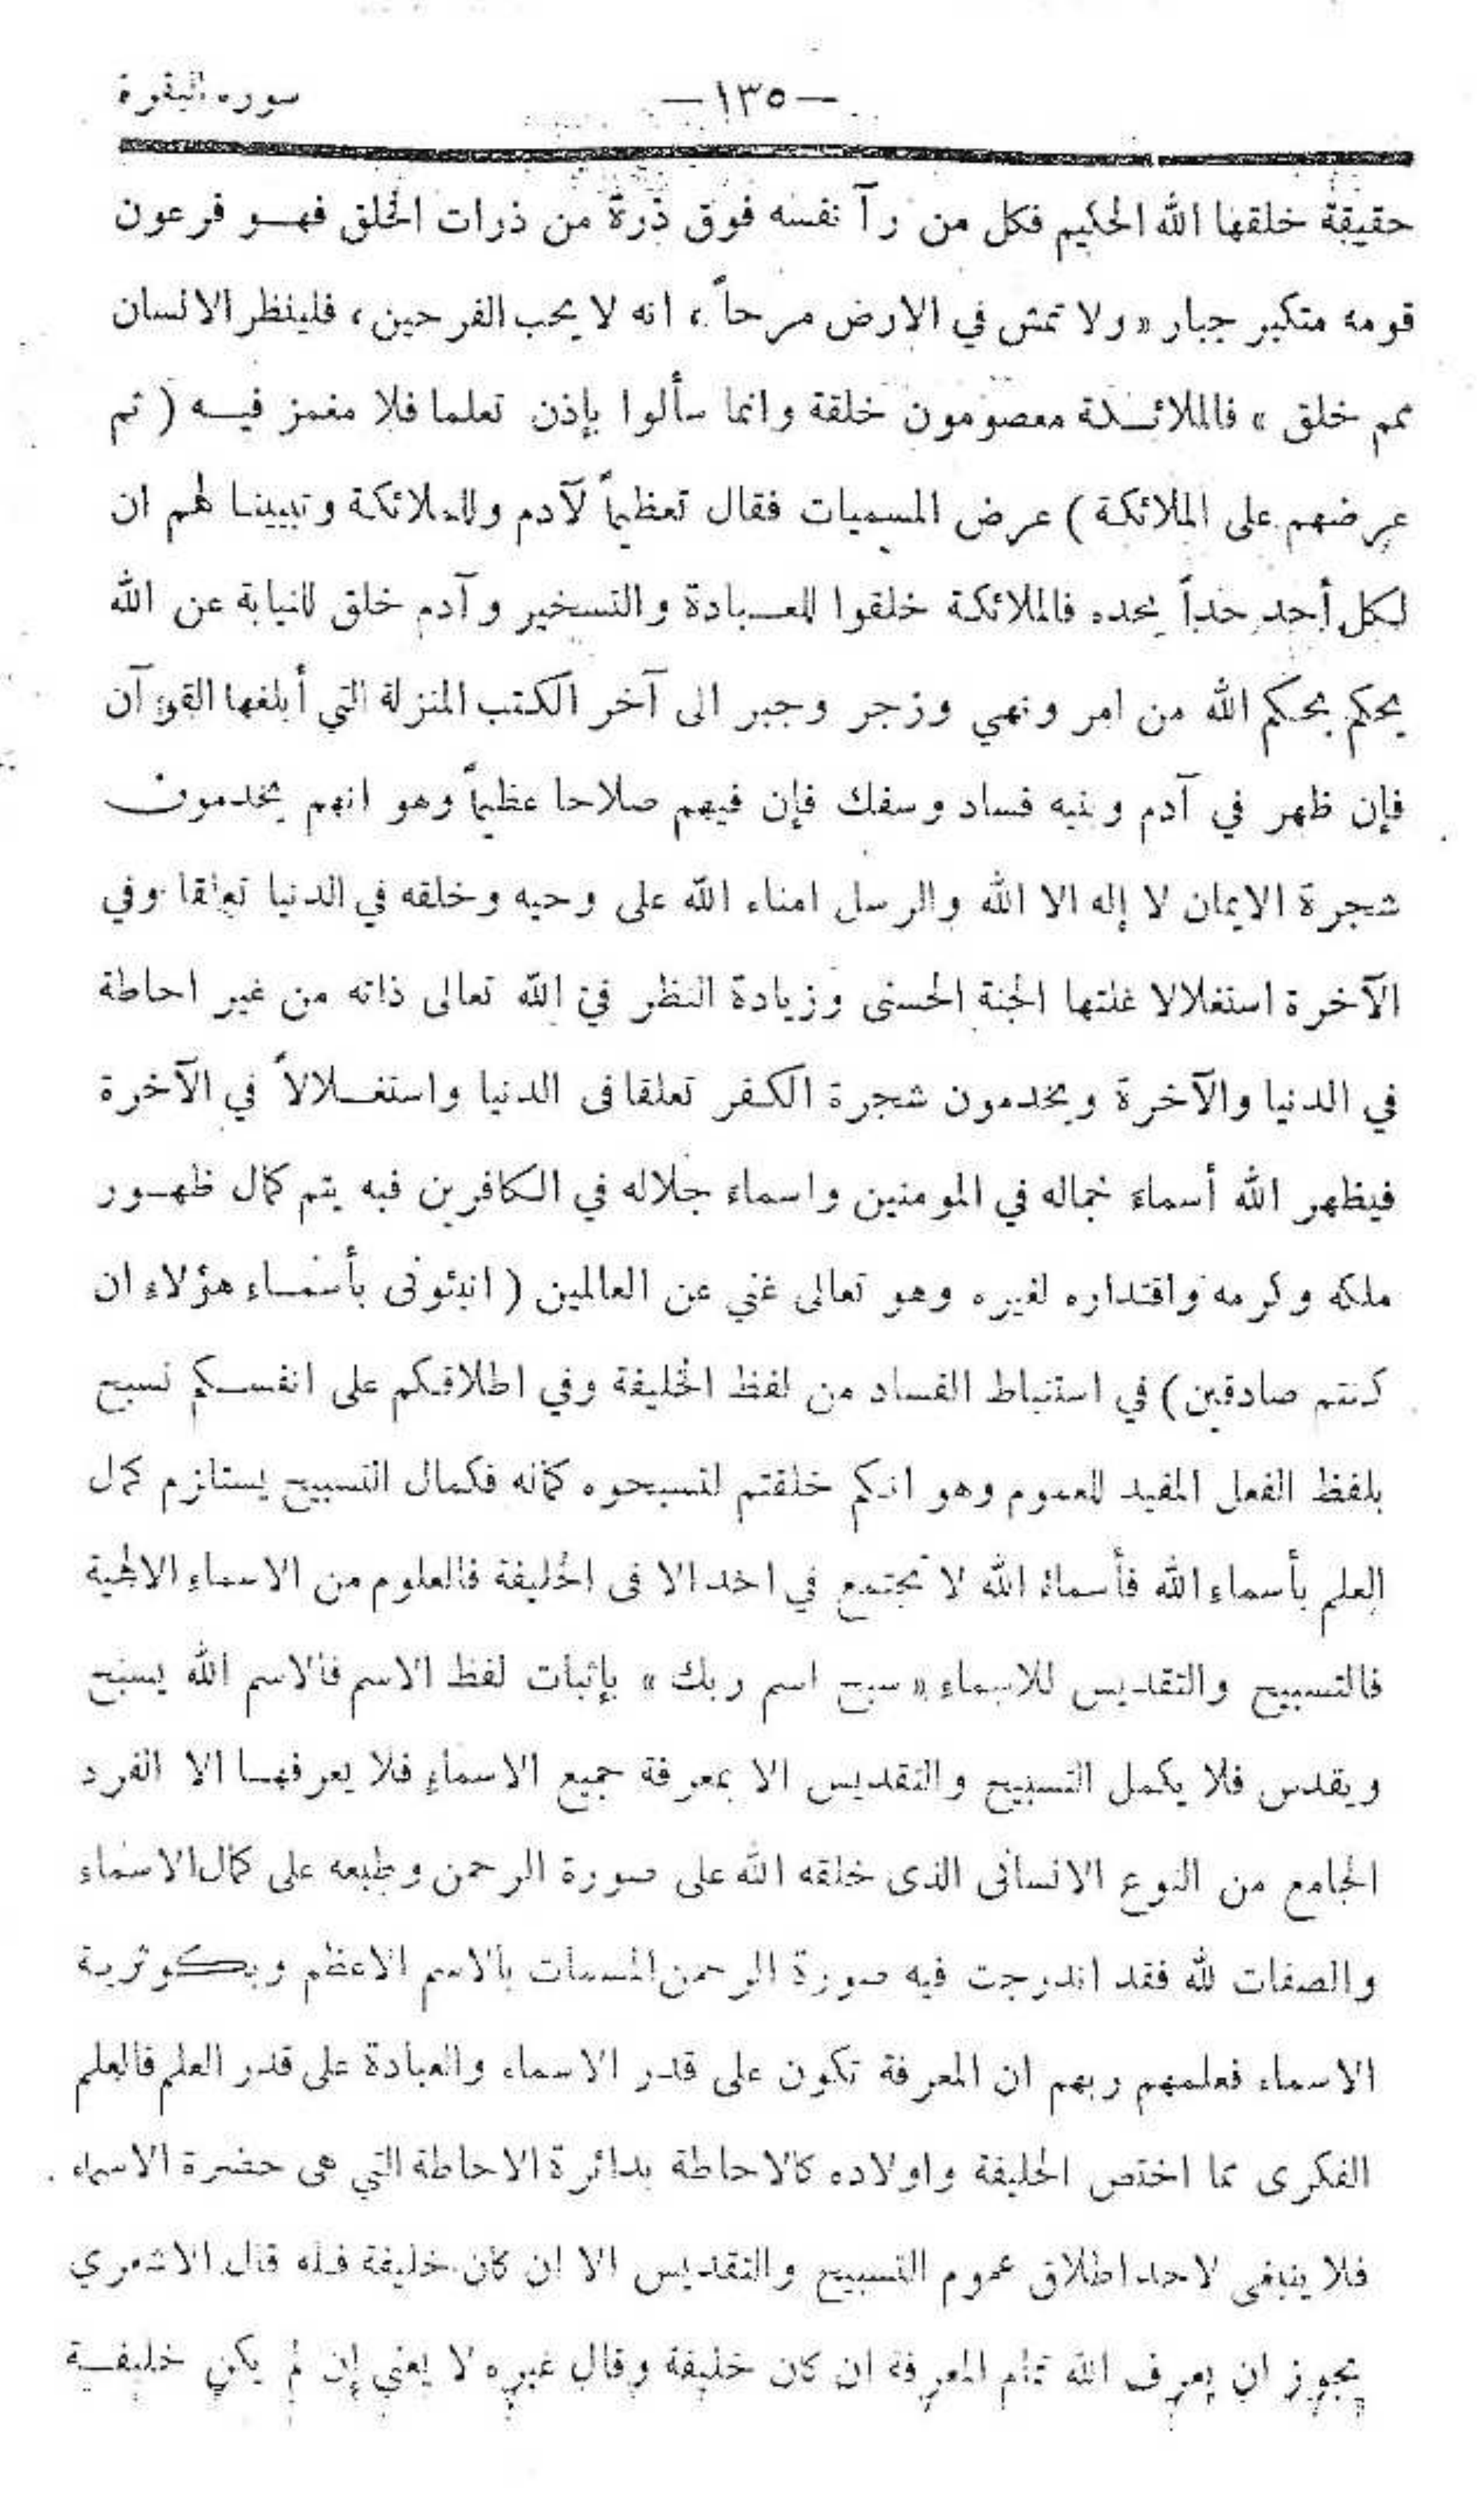 سورة البقرة
—١٣٥—
حقيقة خلقها الله الحكيم فكل من رآ نفسه فوق ذرة من ذرات الخلق فهو فرعون
قومه متكبر جبار « ولا تمش في الارض مرحاً ، انه لا يحب الفرحين ، فلينظر الانسان
مم خلق » فالملائكة معصومون خلقة وانما سألوا بإذن تعلما فلا مغمز فيه ( ثم
عرضهم على الملائكة ) عرض المسميات فقال تعظيماً لآدم وللملائكة وتبيينا لهم ان
لكل أحد حداً يحده فالملائكة خلقوا للعبادة والتسخير وآدم خلق للنيابة عن الله
يحكم بحكم الله من امر ونهي وزجر وجبر الى آخر الكتب المنزلة التي أبلغها القرآن
فإن ظهر في آدم وبنيه فساد وسفك فإن فيهم صلاحا عظيماً وهو انهم يخدمون
شجرة الايمان لا إله الا الله والرسل امناء الله على وحيه وخلقه في الدنيا تعلقا وفي
الآخرة استغلالا غلتها الجنة الحسنى وزيادة النظر في الله تعالى ذاته من غير احاطة
في الدنيا والآخرة ويخدمون شجرة الكفر تعلقا فى الدنيا واستغلالاً في الآخرة
فيظهر الله أسماء جماله في المومنين واسماء جلاله في الكافرين فبه يتم كمال ظهور
ملكه وكرمه واقتداره لغيره وهو تعالى غني عن العالمين ( انبئونى بأسماء هؤلاء ان
كنتم صادقين ) في استنباط الفساد من لفظ الخليفة وفي اطلاقكم على انفسكم نسبح
بلفظ الفعل المفيد للعموم وهو انكم خلقتم لتسبحوه كأنه فكمال التسبيح يستلزم كمال
العلم بأسماء الله فأسماء الله لا تجتمع في احد الا فى الخليفة فالعلوم من الاسماء الالهية
فالتسبيح والتقديس للاسماء « سبح اسم ربك » بإثبات لفظ الاسم فالاسم الله يسبح
ويقدس فلا يكمل التسبيح والتقديس الا بمعرفة جميع الاسماء فلا يعرفها الا الفرد
الجامع من النوع الانسانى الذى خلقه الله على صورة الرحمن وطبعه على كمال الاسماء
والصفات لله فقد اندرجت فيه صورة الرحمن المسمات بالاسم الاعظم وبكوثرية
الاسماء فعلمهم ربهم ان المعرفة تكون على قدر الاسماء والعبادة على قدر العلم فالعلم
الفكرى مما اختص الخليفة واولاده كالاحاطة بدائرة الاحاطة التي هى حضرة الاسماء
فلا ينبغى لاحد اطلاق عموم التسبيح والتقديس الا ان كان خليفة فله قال الاشعري
يجوز ان يعرف الله تمام المعرفة ان كان خليفة وقال غيره لا يعني إن لم يكن خليفة